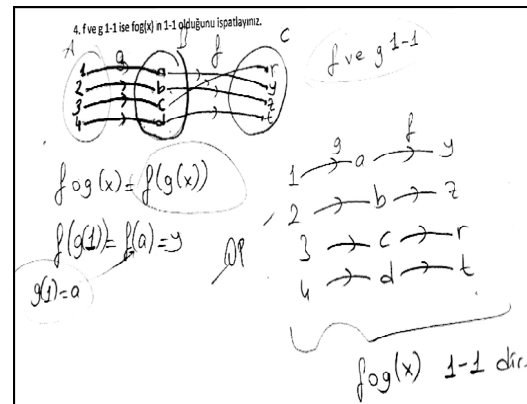 4. f ve g 1-1 ise fog(x) in 1-1 olduğunu ispatlayınız.
A g B f C
1 a r
2 b y
3 c z
4 d t
f ve g 1-1
fog(x) = f(g(x))
f(g(1)) = f(a) = y
g(1) = a
g f
1 a y
2 b z
3 c r
4 d t
fog(x) 1-1 dir.